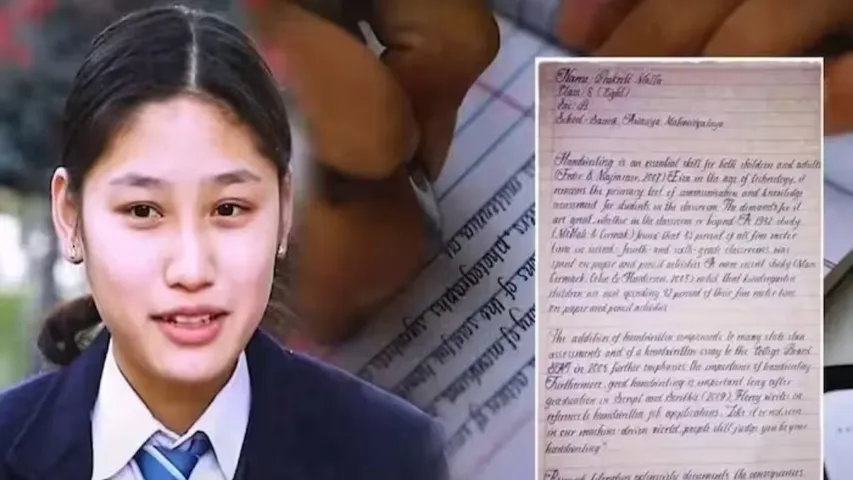 Name: Prakriti Malla
Class: 8 (Eight)
Sec: B
School: Sainik Awasiya Mahavidyalaya
Handwriting is an essential skill for both children and adults
(Feder & Majnemer, 2007). Even in the age of technology, it
remains the primary tool of communication and knowledge
assessment for students in the classroom. The demands for it
are great, whether in the classroom or beyond. A 1992 study
(McHale & Cermak) found that 85 percent of all fine motor
time in second- fourth- and sixth-grade classrooms was
spent on paper and pencil activities. A more recent study (Marr
Cermak, Cohn & Henderson, 2003) noted that kindergarten
children are now spending 42 percent of their fine motor time
on paper and pencil activities.
The addition of handwritten components to many state
assessments and of a handwritten essay to the College Board
SAT in 2005 further emphasize the importance of handwriting.
Furthermore, good handwriting is important long after
graduation. In Script and Scribble (2009), Florey writes in
reference to handwritten job applications, "Like it or not, even
in our machine-driven world, people still judge you by your
handwriting"
documents the consequences
millennia as
photographs
ions of the
ory of